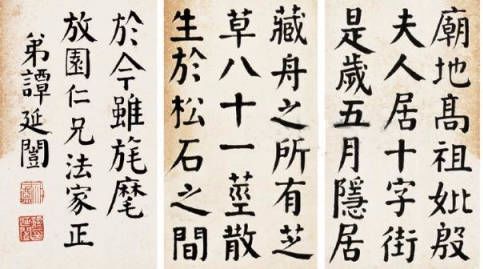 廟地髙祖妣殷
夫人居十字街
是歲五月隱居
藏舟之所有芝
草八十一莖散
生於松石之間
於今雖旄麾
放園仁兄法家正
弟譚延闓